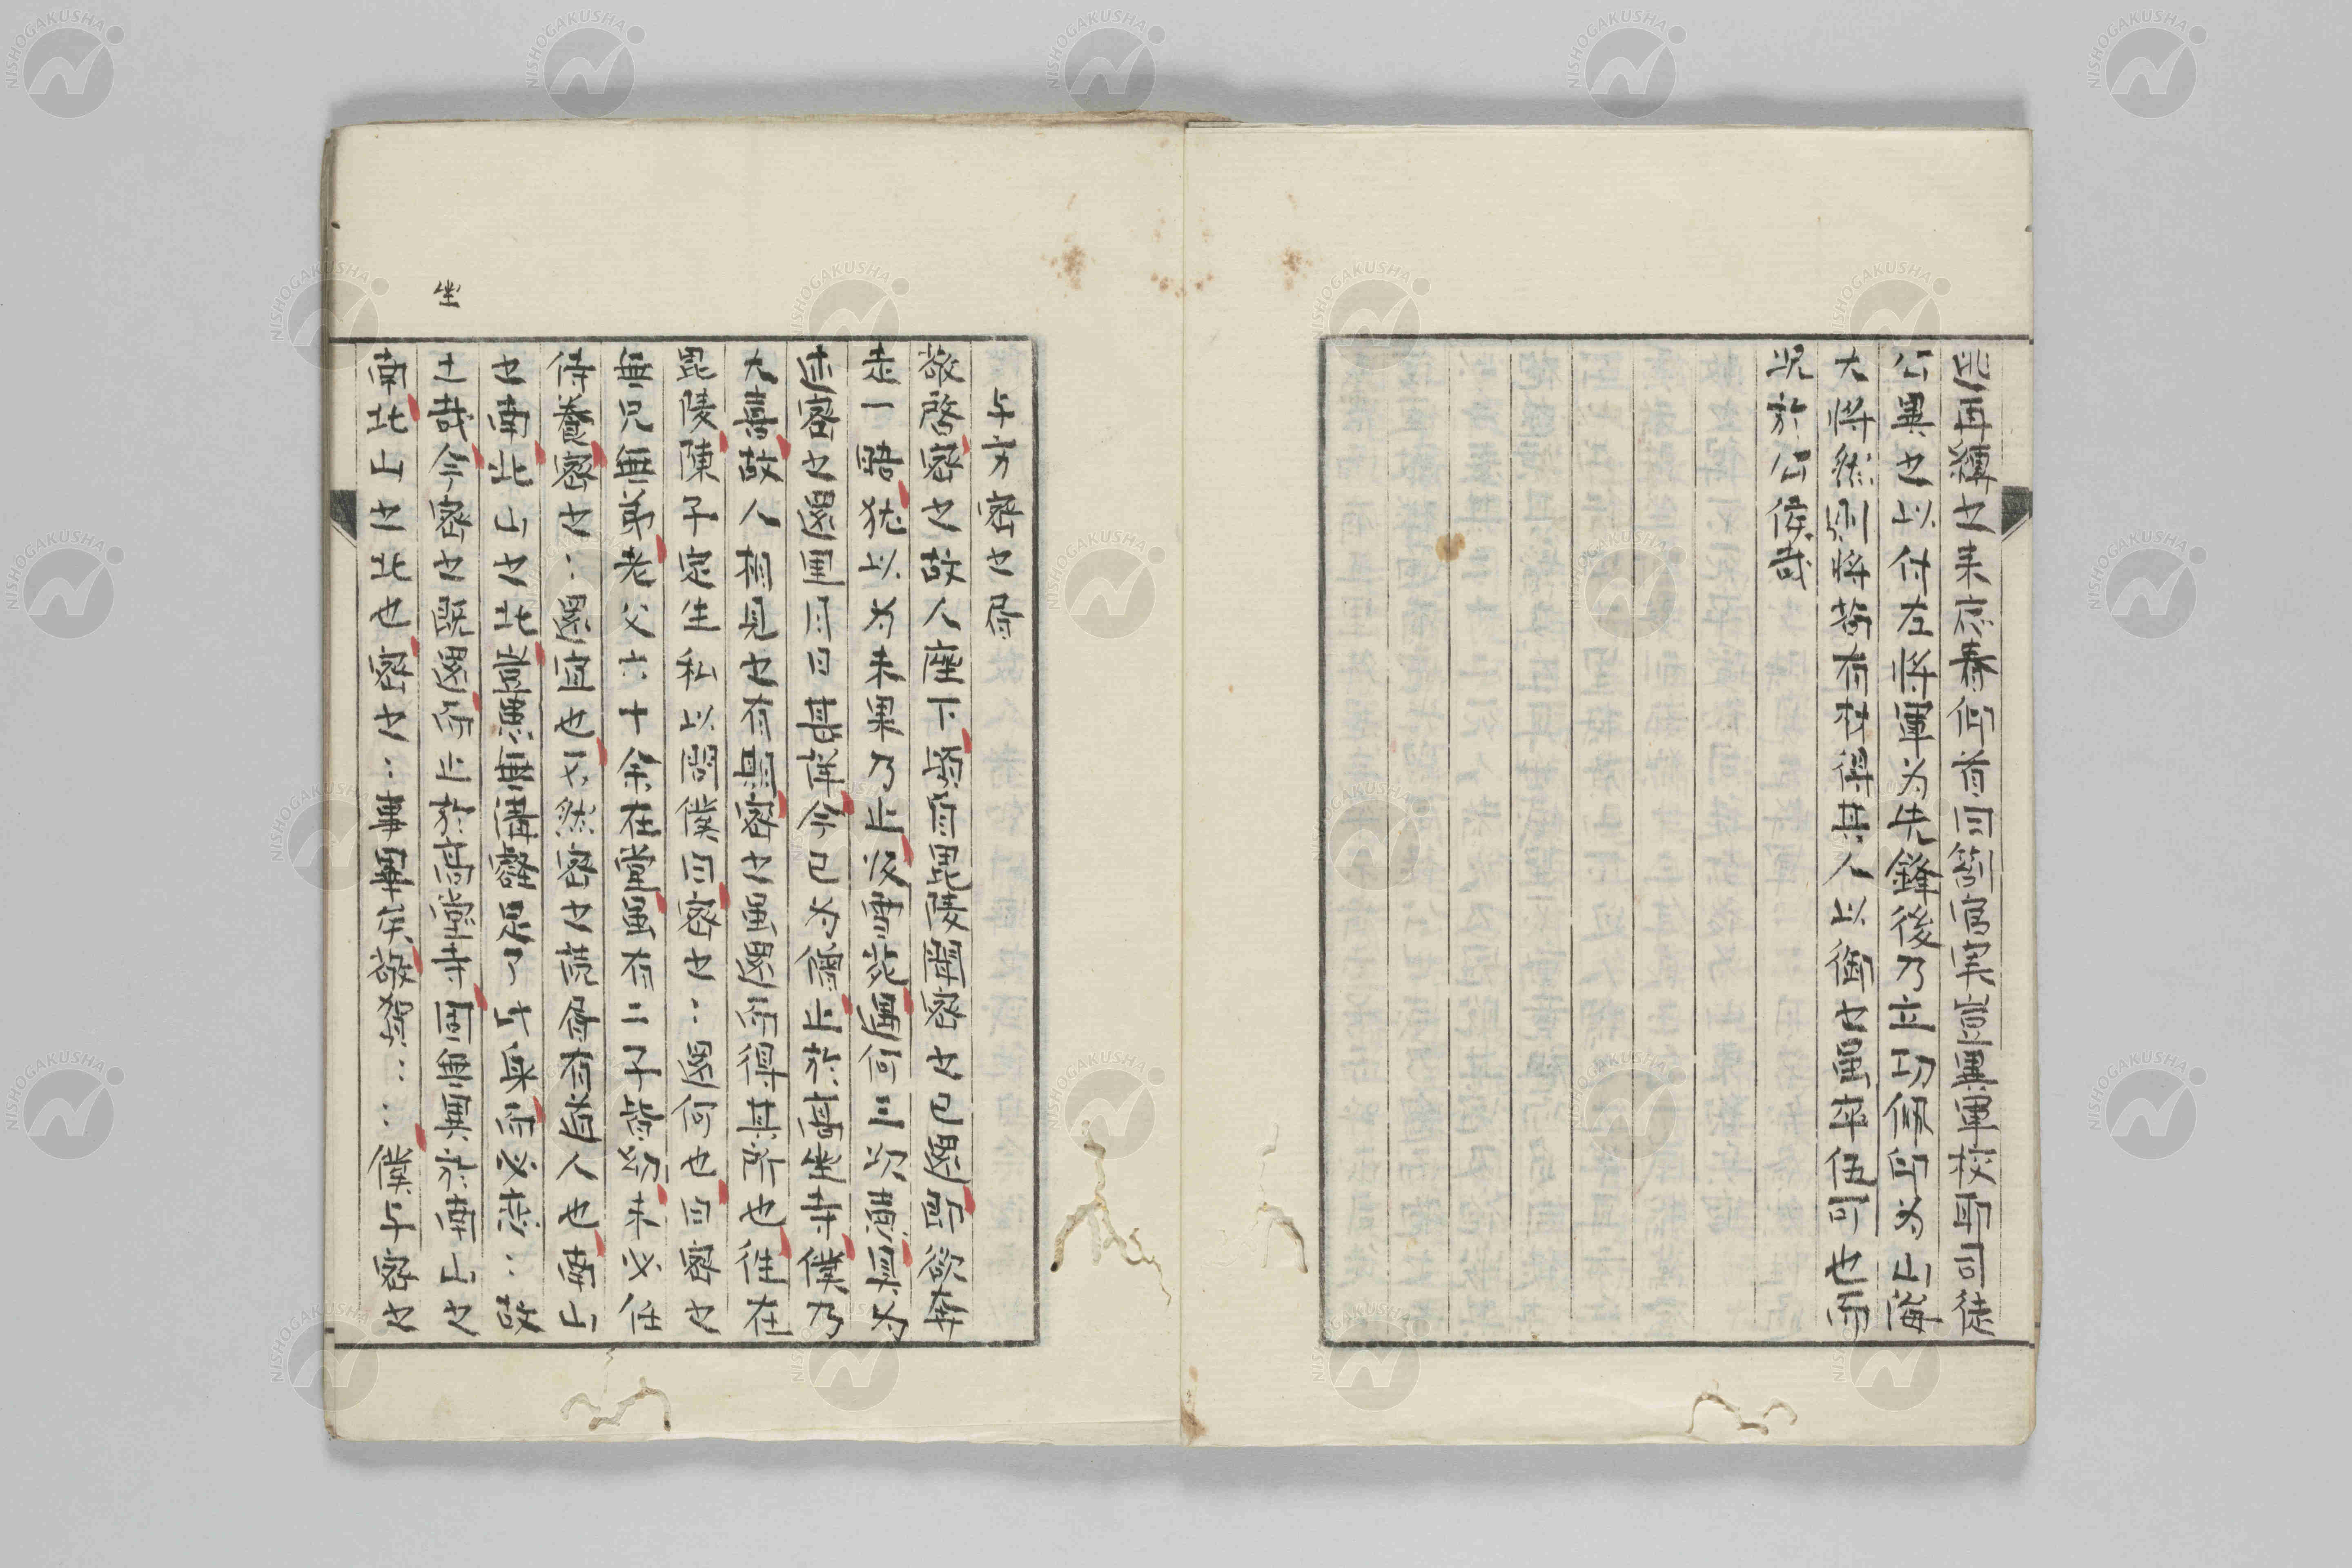 此再縛之未忘春何首回劄官宲豈異軍校耶司徒
公異之以付左将軍为先鋒後乃立功佩印为山海
大将然则将苟有材得其人以御之虽卒伍可也而
况於公侯哉
与方密之書
敬啓密之故人座下頃有毘陵聞密之已還即欲奔
走一晤犹以为未果乃止及雪苑何三次黄
述密之還里月日甚詳今已为僧止於高坐寺僕乃
大喜故人相見之有期密之虽還而得其所也往在
毘陵陳子定生私以問僕曰密之〻還何也曰密之
無兄無弟老父六十余在堂虽有二子皆幼未必任
侍養密之〻還宜也不然密之荒有道人也南山
之南北山之北豈無講足了此身而必恋〻故
土哉今密之既還而止於高堂寺固無異於南山之
南北山之北也密之〻事畢矣敬賀〻〻僕与密之
坐
NISHOGAKUSHA